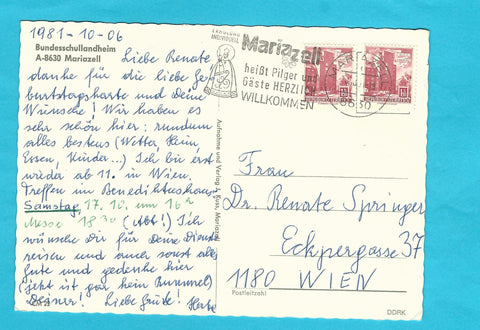 1981-10-06
Bundesschullandheim
A-8630 Mariazell
Liebe Renate
danke für die liebe Ge-
burtstagskarte und deine
Wünsche! Wir haben es
sehr schön hier: rundum
alles bestens (Wetter, Heim,
Essen, Kinder...) Ich bin erst
wieder ab 11. in Wien.
Treffen im Benediktushaus
Samstag, 17. 10. um 16h
Messe 18 30 (Abt!) Ich
wünsche dir für deine Dienst-
reisen und auch sonst alles
Gute und gedenke hier
(jetzt ist gar kein Rummel)
Deiner! Liebe Grüße!
Aufnahme und Verlag J. Kuss, Mariazell
ERHOLUNG
INDIVIDUELL
Mariazell
heißt Pilger und
Gäste HERZLICH
WILLKOMMEN
MARIAZELL
8630
Frau
Dr. Renate Springer
Eckpergasse 37
1180 WIEN
Postleitzahl
DDRK